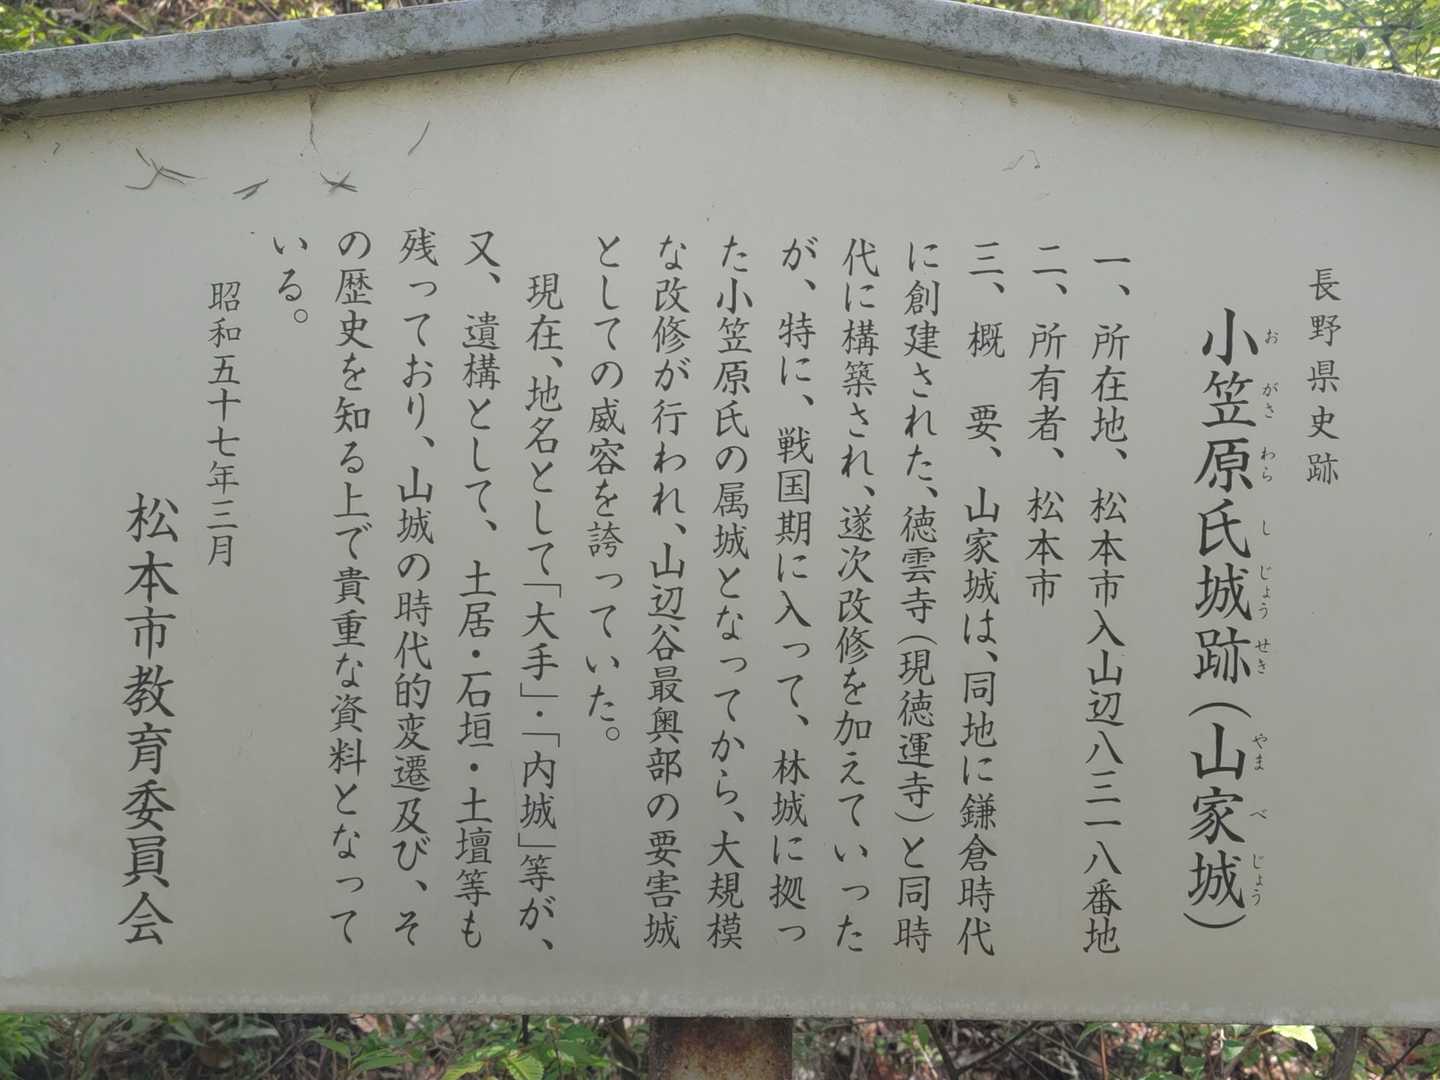 長野県史跡
小笠原氏城跡(山家城)
おがさわらしじょうせき やまべじょう
一、所在地、松本市入山辺八三一八番地
二、所有者、松本市
三、概　要、山家城は、同地に鎌倉時代
に創建された、徳雲寺(現徳運寺)と同時
代に構築され、遂次改修を加えていった
が、特に、戦国期に入って、林城に拠っ
た小笠原氏の属城となってから、大規模
な改修が行われ、山辺谷最奥部の要害城
としての威容を誇っていた。
現在、地名として「大手」・「内城」等が、
又、遺構として、土居・石垣・土壇等も
残っており、山城の時代的変遷及び、そ
の歴史を知る上で貴重な資料となって
いる。
昭和五十七年三月
松本市教育委員会